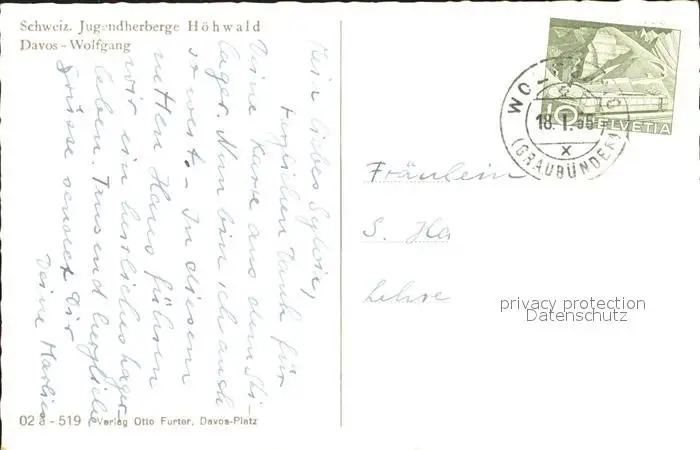 Schweiz. Jugendherberge Höhwald
Davos - Wolfgang
Mein liebes Sylvie,
herzlichen Dank für
Deine Karte aus dem Ski-
lager. Nun bin ich auch
so weit. - In diesem
netten Haus führen
wir ein herrliches Lager-
leben. Tausend herzliche
Grüsse sendet Dir
Deine Marlies
02 a - 519 Verlag Otto Furter, Davos-Platz
10 HELVETIA
18. I. 55
X
(GRAUBÜNDEN)
Fräulein
S. Ha
Lehre
privacy protection
Datenschutz